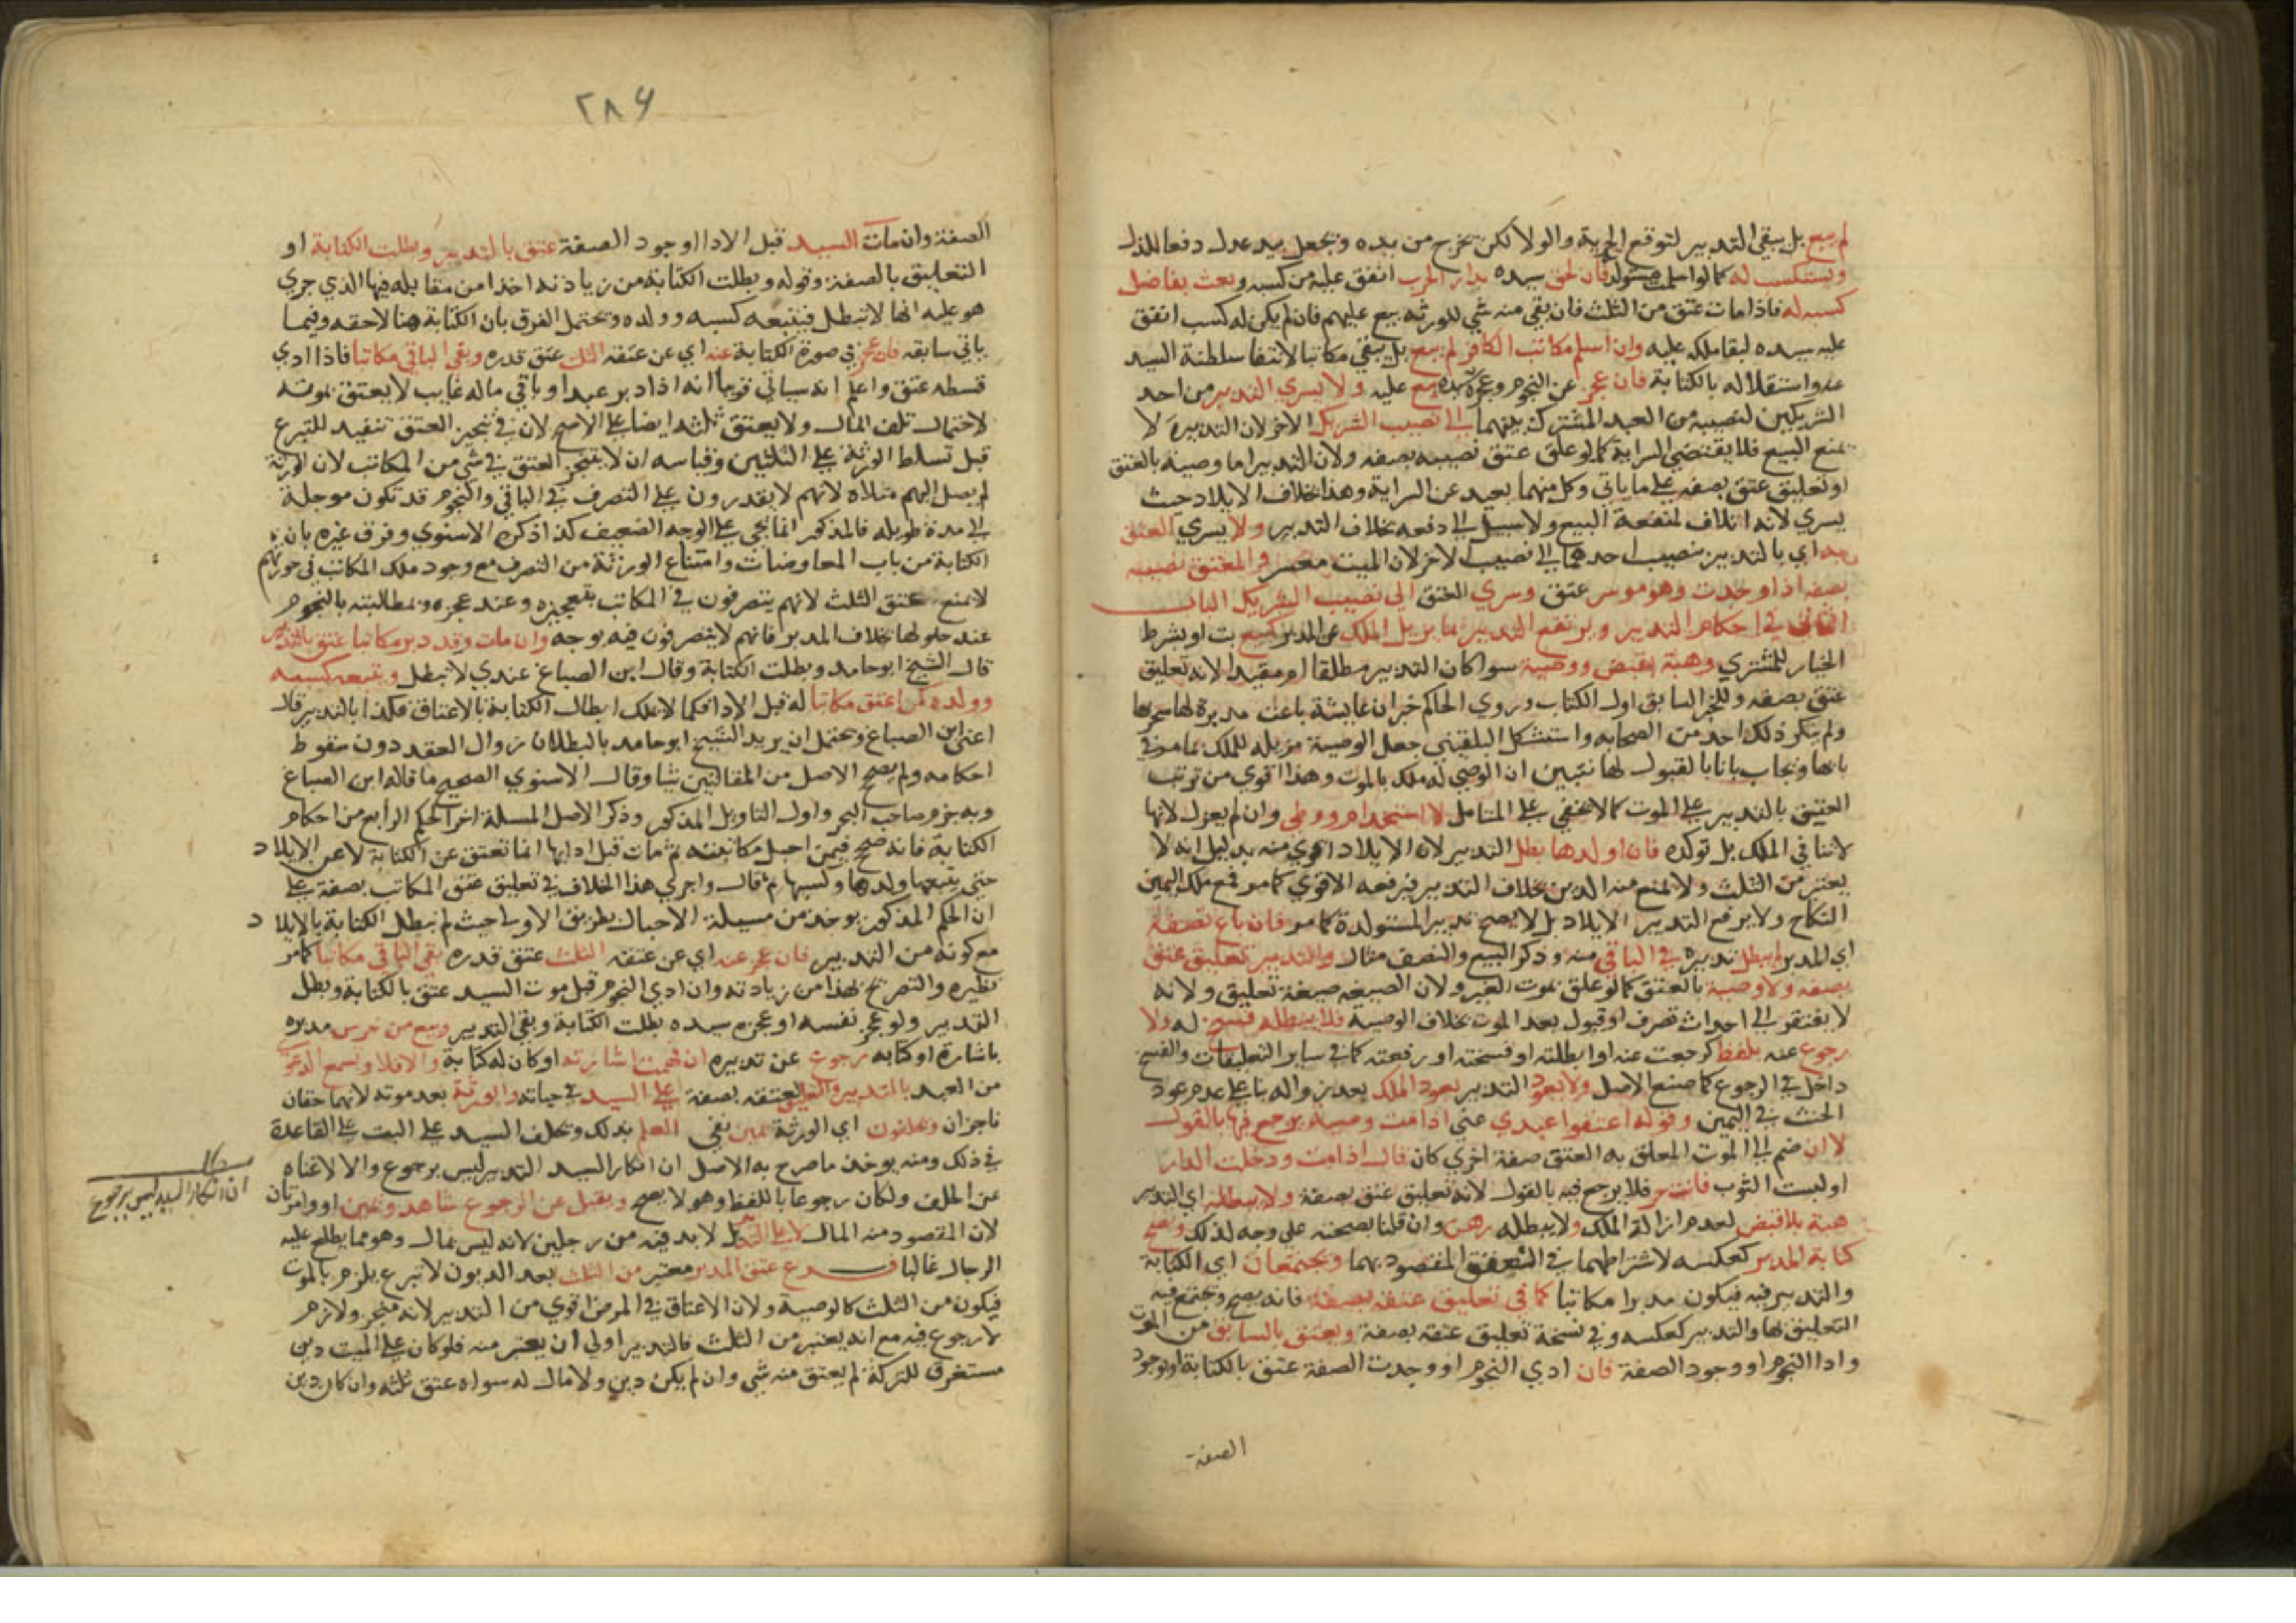 لم يبع بل يبقي التدبير لتوقع الحرية والولا لكن تخرج من يده وتجعل بيد عدل دفعا للذل
ويستكسب له كما لو اسلمت مستولدته فان لحق سيده بدار الحرب انفق عليه من كسبه وبعث بفاضل
كسبه له فاذا مات عتق من الثلث فان بقي منه شي للورثه بيع عليهم فان لم يكن له كسب انفق
عليه سيده لبقا ملكه عليه وان اسلم مكاتب الكافر لم يبع بل يبقي مكاتبا لانتفا سلطنة السيد
عنه واستقلاله بالكتابة فان عجز عن النجوم وعجزه سيده بيع عليه ولا يسري التدبير من احد
الشريكين لنصيبه من العبد المشترك بينهما الي نصيب الشريك الاخر لان التدبير لا
يمنع البيع فلا يقتضي السراية كما لو علق عتق نصيبه بصفه ولان التدبير اما وصية بالعتق
او تعليق عتق بصفه علي ما ياتي وكل منهما بعيد عن السراية وهذا بخلاف الايلاد حيث
يسري لانه اتلاف لمنفعة البيع ولا سبيل الي دفعه بخلاف التدبير ولا يسري العتق
به اي بالتدبير من نصيب احدهما الي نصيب الاخر لان الميت معسر والمعتق نصيبه
بصفه اذا وجدت وهو موسر عتق وسري العتق الي نصيب الشريك الباب
الثاني في احكام التدبير ويرتفع التدبير بما يزيل الملك عن المدبر كبيع بت او بشرط
الخيار للمشتري وهبة بقبض ووصية سوا كان التدبير مطلقا او مقيدا لانه تعليق
عتق بصفه وللخبر السابق اول الكتاب وروي الحاكم خبر ان عايشة باعت مدبرة لها سحرتها
ولم ينكر ذلك احد من الصحابه واستشكل البلقيني جعل الوصية مزيله للملك بما مر في
بابها ويجاب بانا بالقبول لها نتبين ان الموصي له ملك بالموت وهذا اقوي من ترتب
العتق بالتدبير علي الموت كما لا يخفي علي المتامل لا استخدام ووطي وان لم يعزل لانها
لا تنافي الملك بل توكده فان اولدها بطل التدبير لان الايلاد اقوي منه بدليل انه لا
يعتبر من الثلث ولا يمنع منه الدين بخلاف التدبير فيرفعه الاقوي كما يرفع ملك اليمين
النكاح ولا يرفع التدبير الايلاد بل لا يصح تدبير المستولدة كما مر فان باع نصفه
اي المدبر لم يبطل تدبيره في الباقي منه وذكر البيع والنصف مثال والتدبير تعليق عتق
بصفه ولا وصية بالعتق كما لو علق بموت الغير ولان الصيغه صيغة تعليق ولانه
لا يفتقر الي احداث تصرف او قبول بعد الموت بخلاف الوصية فلا يبطله فسخ له ولا
رجوع عنه بلفظ كرجعت عنه او ابطلته او فسخته او رفعته كما في ساير التعليقات والفسخ
داخل في الرجوع كما صنع الاصل ولا يعود التدبير بعود الملك بعد زواله بنا علي عدم عود
الحنث في اليمين وقوله اعتقوا عبدي عني اذا مت وصية يرجع فيها بالقول
لا ان ضم الي الموت المعلق به العتق صفة اخري كان قال اذا مت ودخلت الدار
او لبست الثوب فانت حر فلا يرجع فيه بالقول لانه تعليق عتق بصفة ولا يبطله اي التدبير
هبة بلا قبض لعدم ازالة الملك ولا يبطله رهن وان قلنا بصحته علي وجه لذلك وتصح
كتابة المدبر كعكسه لاشتراكهما في العتق المقصود بهما ويجتمعان اي الكتابة
والتدبير فيه فيكون مدبرا مكاتبا كما في تعليق عتقه بصفة فانه يصح وتجتمع فيه
التعليق لها والتدبير كعكسه وفي نسخة تعليق عتقه بصفة ويعتق بالسابق من الموت
وادا النجوم او وجود الصفة فان ادي النجوم او وجدت الصفة عتق بالكتابة او بوجود
الصفة
٢٨٦
الصفة وان مات السيد قبل الادا او وجود الصفة عتق بالتدبير وبطلت الكتابة او
التعليق بالصفة وقوله وبطلت الكتابة من زيادته اخذا من مقابله فيها الذي جري
هو عليه انها لا تبطل فيتبعه كسبه وولده ويحتمل الفرق بان الكتابة هنا لاحقه وفيما
ياتي سابقه فان عجز في صورة الكتابة عنه اي عن عتقه الثلث عتق قدره وبقي الباقي مكاتبا فاذا ادي
قسطه عتق واعلم انه سياتي قريبا انه اذا دبر عبدا وباقي ماله غايب لا يعتق بموته
لاحتمال تلف المال ولا يعتق ثلثه ايضا علي الاصح لان في تنجيز العتق تنفيد للتبرع
قبل تسلط الورثة علي الثلثين وقياسه ان لا يتنجز العتق في شي من المكاتب لان الورثة
لم يصل اليهم مثلاه لانهم لا يقدرون علي التصرف في الباقي والنجوم قد تكون موجلة
الي مدة طويله فالمذكور انما يجي علي الوجه الضعيف كذا ذكره الاسنوي وفرق غيره بان
الكتابة من باب المعاوضات وامتناع الورثة من التصرف مع وجود ملك المكاتب في حوزتهم
لا يمنع عتق الثلث لانهم يتصرفون في المكاتب بتعجيزه وعند عجزه ومطالبته بالنجوم
عند حلولها بخلاف المدبر فانهم لا يتصرفون فيه بوجه وان مات وقد دبر مكاتبا عتق بالتدبير
قال الشيخ ابو حامد وبطلت الكتابة وقال ابن الصباغ عندي لا تبطل ويتبعه كسبه
وولده كمن اعتق مكاتبا له قبل الادا فكما لا يملك ابطال الكتابة بالاعتاق فكذا بالتدبير قال
اعني ابن الصباغ ويحتمل ان يريد الشيخ ابو حامد بالبطلان زوال العقد دون سقوط
احكامه ولم يصحح الاصل من المقالتين شيا وقال الاسنوي الصحيح ما قاله ابن الصباغ
وبه جزم صاحب البحر واول التاويل المذكور وذكر الاصل المسلة اخر الحكم الرابع من احكام
الكتابة فانه صحح فيمن احبل مكاتبته ثم مات قبل ادايها انها تعتق عن الكتابة لا عن الايلاد
حتي يتبعها ولدها وكسبها ثم قال واجري هذا الخلاف في تعليق عتق المكاتب بصفة علي
ان الحكم المذكور يوخذ من مسيلة الاحبال بطريق الاولي حيث لم تبطل الكتابة بالايلاد
مع كونه من التدبير فان عجز عنه اي عن عتقه الثلث عتق قدره بقي الباقي مكاتبا كما مر
نظيره والتصريح بهذا من زيادته وان ادي النجوم قبل موت السيد عتق بالكتابة وبطل
التدبير ولو عجز نفسه او عجزه سيده بطلت الكتابة وبقي التدبير وبيع من خرس مدبره
باشارة او كتابه رجوع عن تدبيره ان فهمت اشارته او كان له كتابة والا فلا وتسمع الدعوي
من العبد بالتدبير والتعليق لعتقه بصفة علي السيد في حياته والورثة بعد موته لانهما حقان
ناجزان ويحلفون اي الورثة يمين نفي العلم بذلك ويحلف السيد علي البت علي القاعدة
في ذلك ومنه يوخذ ما صرح به الاصل ان انكار السيد التدبير ليس برجوع والا لاغناه
عن الحلف ولكان رجوعا باللفظ وهو لا يصح ويقبل عن الرجوع شاهد ويمين او وامراتان
لان المقصود منه المال لا علي التدبير بل لا بد فيه من رجلين لانه ليس بمال وهو مما يطلع عليه
الرجال غالبا فــرع عتق المدبر معتبر من الثلث بعد الديون لا تبرع يلزم بالموت
فيكون من الثلث كالوصية ولان الاعتاق في المرض اقوي من التدبير لانه منجز ولازم
لا رجوع فيه مع انه يعتبر من الثلث فالتدبير اولي ان يعتبر منه فلو كان علي الميت دين
مستغرق للتركة لم يعتق منه شي وان لم يكن دين ولا مال له سواه عتق ثلثه وان كان دين
ان انكار السيد ليس برجوع